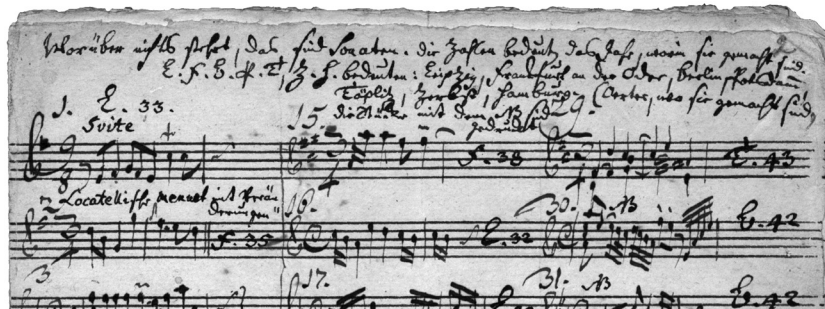 Worüber nichts steht, das sind Sonaten. die Zahlen bedeuten das Jahr, worin sie gemacht sind.
L. F. B. P. T. Z. H. bedeuten: Leipzig, Frankfurt an der Oder, Berlin, Potsdam,
Töplitz, Zerbst, Hamburg (Örter, wo sie gemacht sind,
die Stücke mit dem NB sind
gedruckt)
1. L. 33.
Svite
15
F. 38
29.
T. 43
2 Locatellische Menuet mit Verän
derungen
F. 35
16.
L. 32
30. NB
B. 42
3
17.
31. NB
B. 42